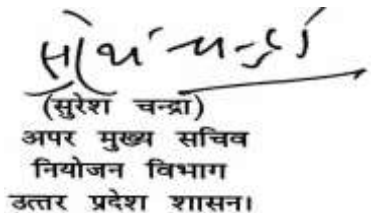 सुरेश चन्द्रा
(सुरेश चन्द्रा)
अपर मुख्य सचिव
नियोजन विभाग
उत्तर प्रदेश शासन।